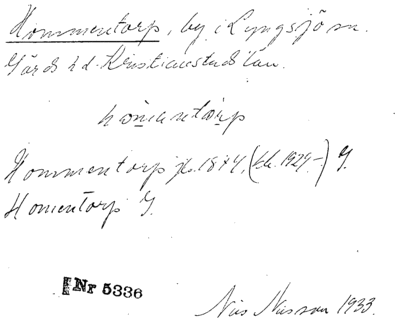 Hommentorp, by i Lyngsjö sn.
Gärds hd. Kristianstads län.
Hommentorp jb. 1874, (bl. 1929.-) G.
Homentorp G.
Nr 5336
Nils Nilsson 1933.